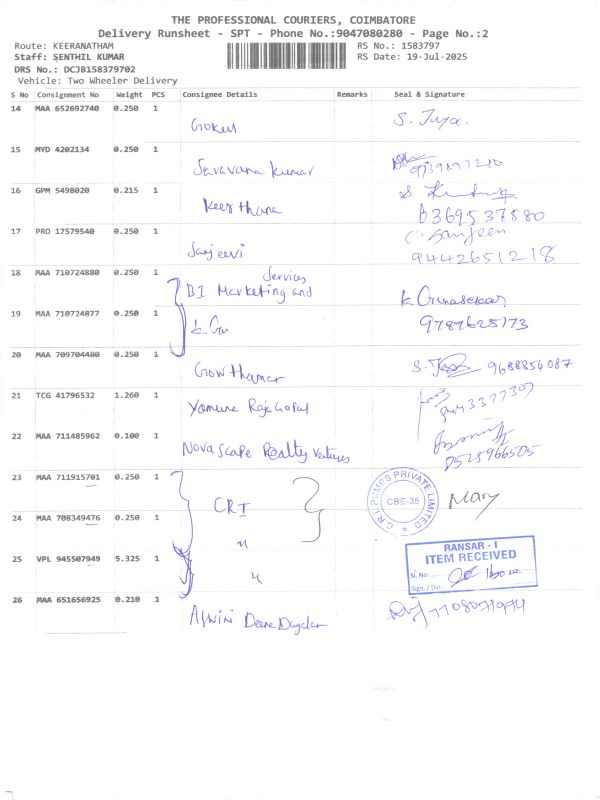 THE PROFESSIONAL COURIERS, COIMBATORE
Delivery Runsheet - SPT - Phone No.:9047080280 - Page No.:2
Route: KEERANATHAM RS No.: 1583797
Staff: SENTHIL KUMAR RS Date: 19-Jul-2025
DRS No.: DCJB158379702
Vehicle: Two Wheeler Delivery
S No Consignment No Weight PCS Consignee Details Remarks Seal & Signature
14 MAA 652692740 0.250 1
Gokul
15 MYD 4202134 0.250 1
Saravana Kumar
16 GPM 5498020 0.215 1
Keerthana
6369537880
17 PRO 17579540 0.250 1
Sanjeevi
9442651218
18 MAA 710724880 0.250 1
Services
BI Marketing and
K. Gunasekar
19 MAA 710724877 0.250 1
9787628173
20 MAA 709704480 0.250 1
Gowthaman 9688854087
21 TCG 41796532 1.260 1
Yamuna Rajagopal
22 MAA 711485962 0.100 1
Novascape Realty Ventures
8525966505
23 MAA 711915701 0.250 1
CRI
C.R.I. PUMPS PRIVATE LIMITED
CBE-35
Mary
24 MAA 708349476 0.250 1
"
RANSAR - I
ITEM RECEIVED
25 VPL 945507949 5.325 1
"
Sl. No:
Sign. / Date
26 MAA 651656925 0.210 1
Aswini